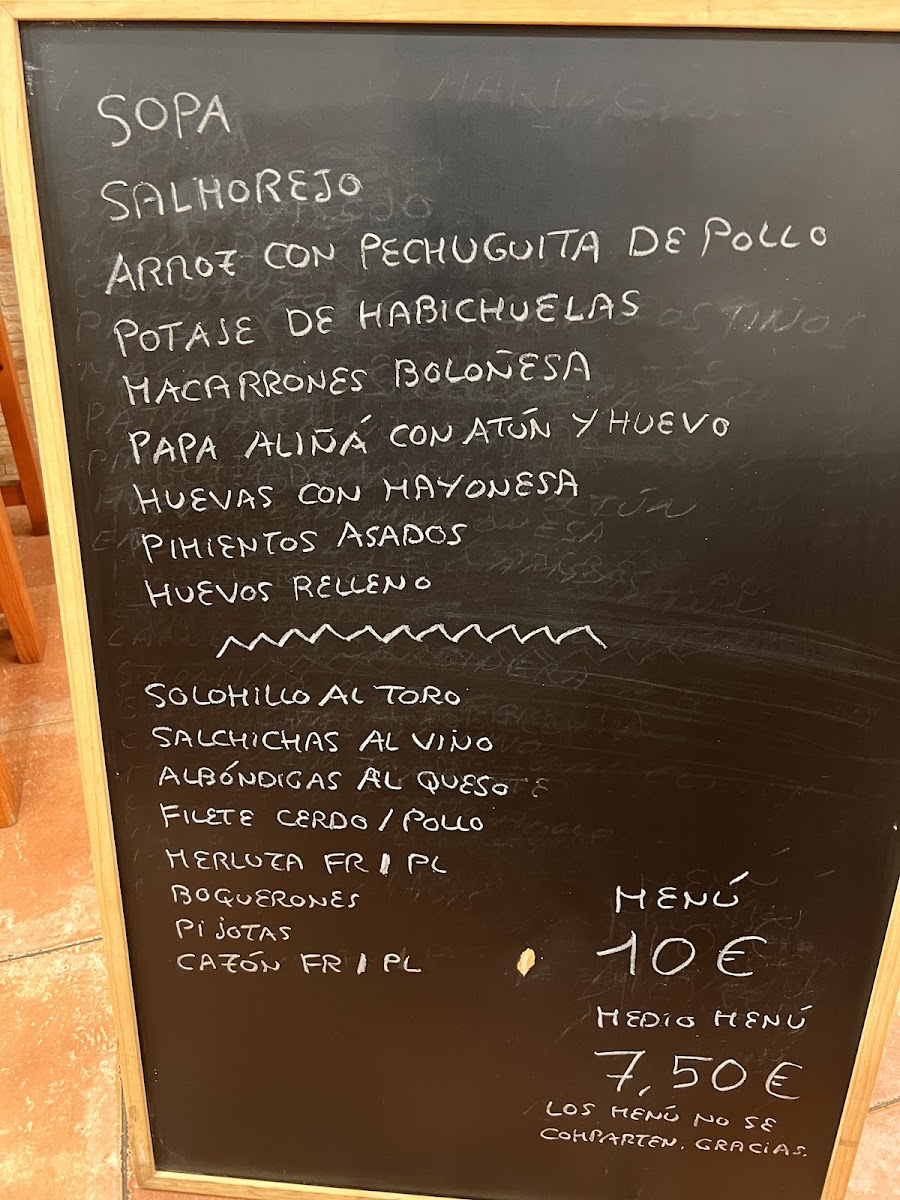 SOPA
SALMOREJO
ARROZ CON PECHUGUITA DE POLLO
POTAJE DE HABICHUELAS
MACARRONES BOLOÑESA
PAPA ALIÑÁ CON ATÚN Y HUEVO
HUEVAS CON MAYONESA
PIMIENTOS ASADOS
HUEVOS RELLENO
SOLOMILLO AL TORO
SALCHICHAS AL VINO
ALBÓNDIGAS AL QUESO
FILETE CERDO/POLLO
MERLUZA FR / PL
BOQUERONES
PIJOTAS
CAZÓN FR / PL
MENÚ
10 €
MEDIO MENÚ
7,50 €
LOS MENÚ NO SE
COMPARTEN. GRACIAS.